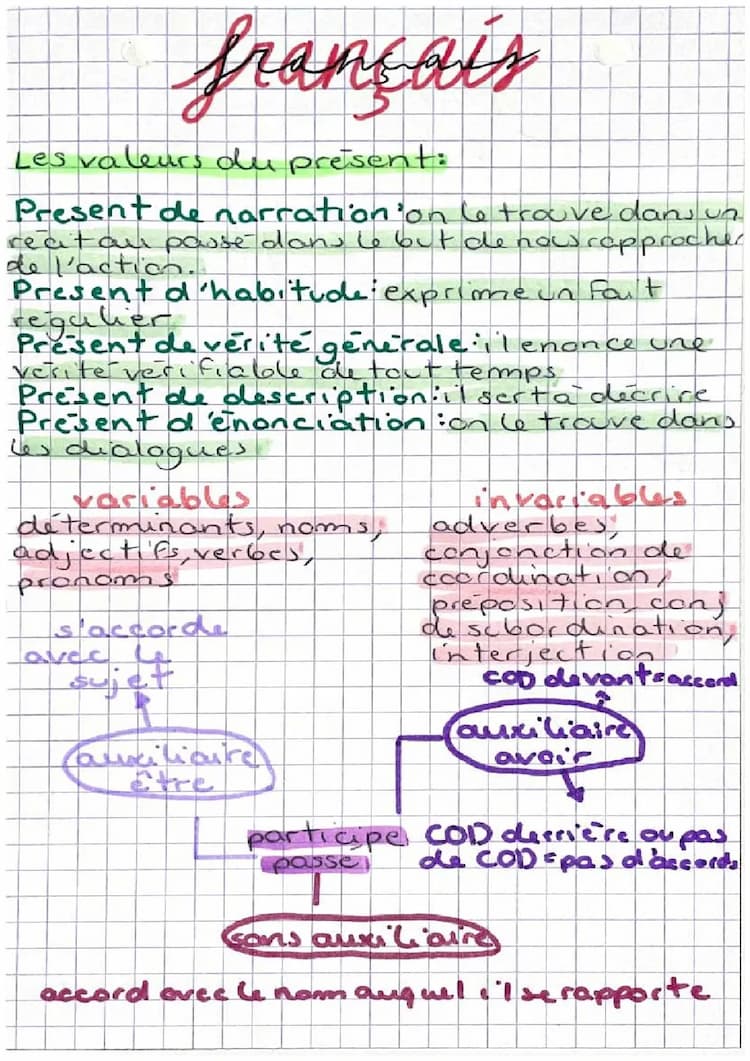 français
Les valeurs du présent:
Présent de narration: on le trouve dans un
récit au passé dans le but de nous rapprocher
de l'action.
Présent d'habitude: exprime un fait
régulier
Présent de vérité générale: il énonce une
vérité vérifiable de tout temmps
Présent de description: il sert à décrire
Présent d'énonciation: on le trouve dans
les dialogues
variables
déterminants, noms,
adjectifs, verbes,
pronoms
invariables
adverbes,
conjonction de
coordination,
préposition, conj
de subordination,
interjection
s'accorde
avec le
sujet
auxiliaire
être
COD devant = accord
auxiliaire
avoir
COD derrière ou pas
de COD = pas d'accords
participe
passé
sans auxiliaire
accord avec le nom auquel il se rapporte